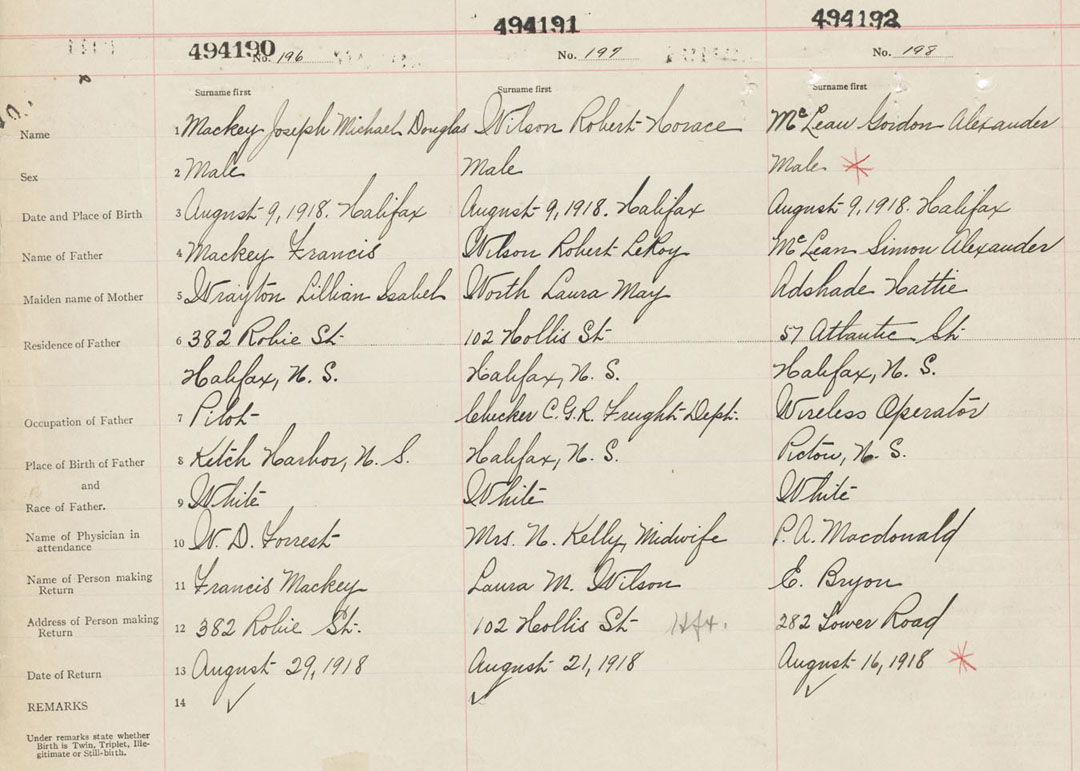 494190 494191 494192
No. 196 No. 197 No. 198
Surname first Surname first Surname first
Name 1 Mackey Joseph Michael Douglas Wilson Robert Horace McLean Gordon Alexander
Sex 2 Male Male Male
Date and Place of Birth 3 August 9, 1918. Halifax August 9, 1918. Halifax August 9, 1918. Halifax
Name of Father 4 Mackey Francis Wilson Robert LeRoy McLean Simon Alexander
Maiden name of Mother 5 Wrayton Lillian Isabel Worth Laura May Adshade Hattie
Residence of Father 6 382 Robie St. 102 Hollis St 57 Atlantic St
Halifax, N. S. Halifax, N. S. Halifax, N. S.
Occupation of Father 7 Pilot Checker C.G.R. Freight Dept. Wireless Operator
Place of Birth of Father 8 Ketch Harbor, N. S. Halifax, N. S. Pictou, N. S.
and
Race of Father. 9 White White White
Name of Physician in
attendance 10 W. D. Forrest Mrs. N. Kelly, Midwife P. A. Macdonald
Name of Person making
Return 11 Francis Mackey Laura M. Wilson E. Bryon
Address of Person making
Return 12 382 Robie St. 102 Hollis St Hfx. 282 Tower Road
Date of Return 13 August 29, 1918 August 21, 1918 August 16, 1918
REMARKS 14
Under remarks state whether
Birth is Twin, Triplet, Ille-
gitimate or Still-birth.